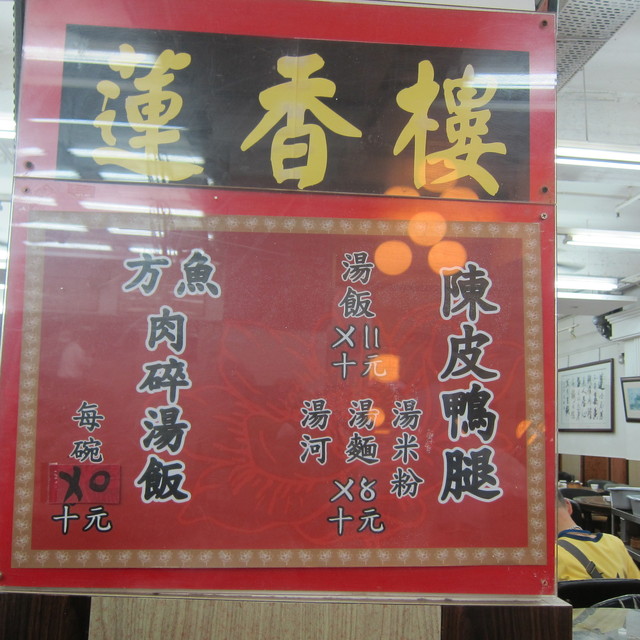 蓮香樓
陳皮鴨腿
湯飯
〤〢
十元
湯米粉
湯麵
湯河
〤〥
十元
魚
方
肉碎湯飯
每碗
〤〇
十元